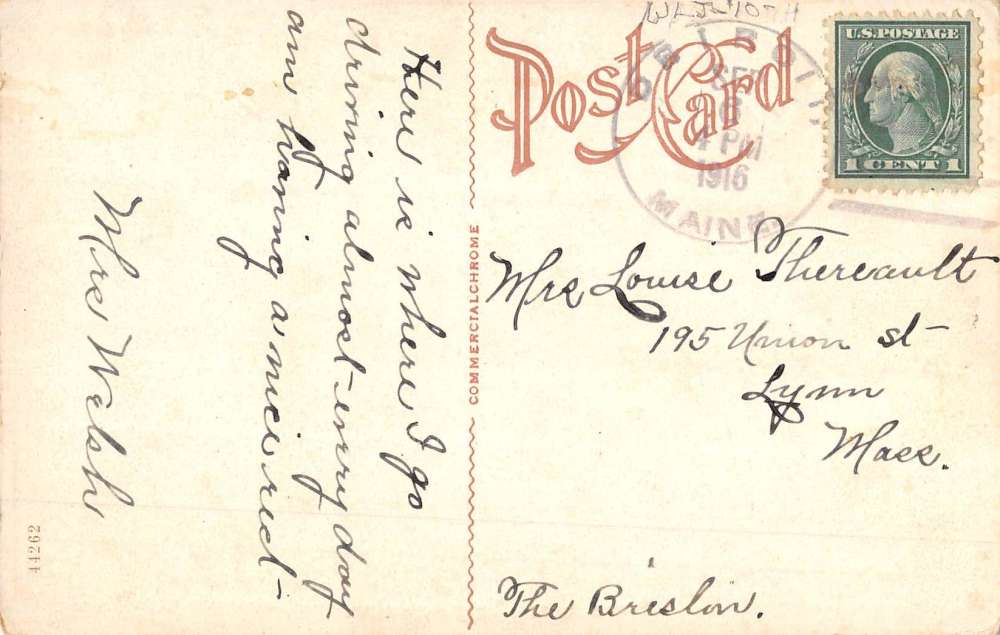 Here is where I go
driving almost every day
am having a nice rest-
Mrs Walsh
44262
COMMERCIALCHROME
Post Card
SEP
6
4 PM
1916
MAINE
U.S. POSTAGE
1 CENT 1
Mrs Louise Thereault
195 Union st
Lynn
Mass.
The Breslon.